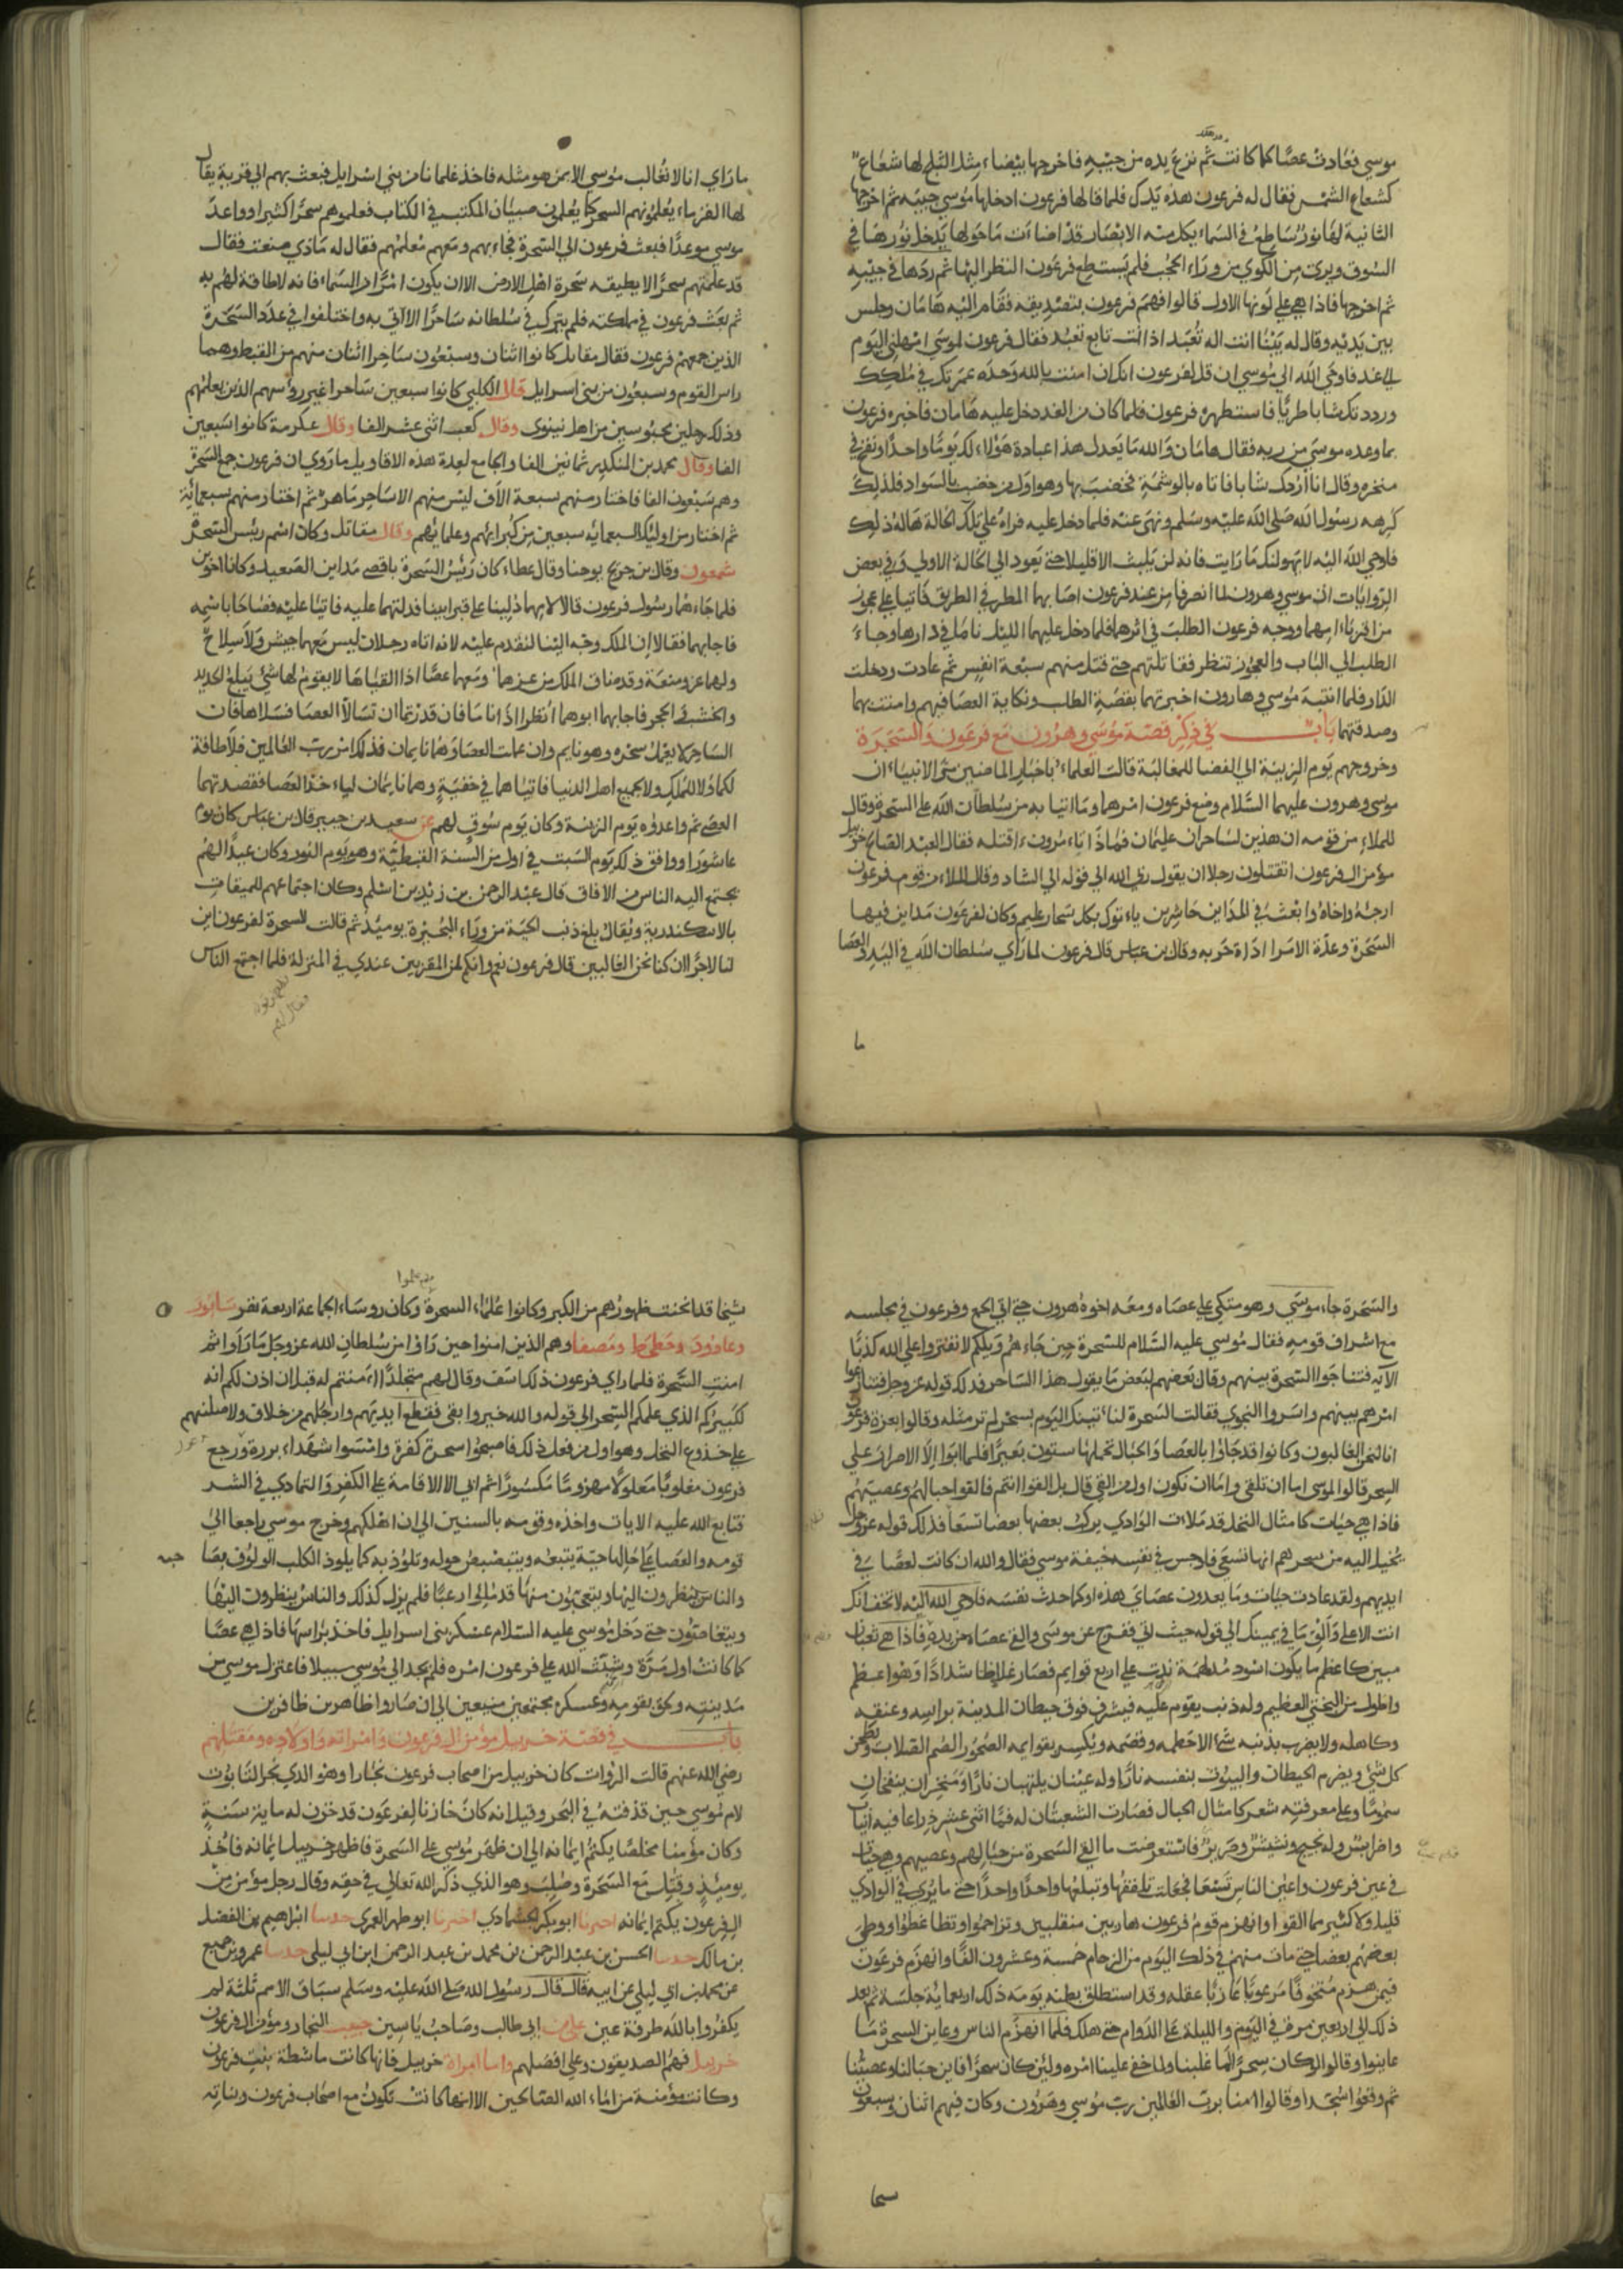 موسي فعادت عصا كما كانت ثم نزع يده من جيبه فاخرجها بيضاء مثل الثلج لها شعاع
كشعاع الشمس فقال له فرعون هذه يدك فلما قالها فرعون ادخلها موسي جيبه ثم اخرجها
الثانية لها نور ساطع في السماء يكل منه الابصار قد اضاءت ما حولها يدخل نورها في
السوق ويري من الكوي من وراء الحجب فلم يستطع فرعون النظر اليها ثم ردها في جيبه
ثم اخرجها فاذا هي علي لونها الاول قالوا فهم فرعون بتصديقه فقام اليه هامان وجلس
بين يديه وقال له بينا انت اله تعبد اذ انت تابع تعبد فقال فرعون لموسي امهلني اليوم
الي غد فاوحي الله الي موسي ان قل لفرعون انك ان امنت بالله وحده عمرتك في ملكك
ورددتك شابا طريا فاستنظره فرعون فلما كان من الغد دخل عليه هامان فاخبره فرعون
بما وعده موسي من ربه فقال هامان والله ما يعدل هذا عبادة هؤلاء لك يوما واحدا ونفخ في
منخره وقال انا اردك شابا فاتاه بالوشمة فخضبه بها وهو اول من خضب بالسواد فلذلك
كرهه رسول الله صلي الله عليه وسلم ونهي عنه فلما دخل عليه فراه علي تلك الحالة هاله ذلك
فاوحي الله اليه لا يهولنك ما رايت فانه لن يلبث الا قليلا حتي يعود الي الحالة الاولي وفي بعض
الروايات ان موسي وهرون لما انصرفا من عند فرعون اصابهما المطر في الطريق فاتيا علي عجوز
من اقرباء امهما ووجه فرعون الطلب في اثرهما فلما دخل عليهما الليل ناما في دارها وجاء
الطلب الي الباب والعجوز تنظر فقاتلتهم حتي قتل منهم سبعة انفس ثم عادت ودخلت
الدار فلما انتبه موسي وهارون اخبرتهما بقصة الطلب ونكاية العصا فيهم وامنت بهما
وصدقتهما باب في ذكر قصة موسي وهرون مع فرعون والسحرة
وخروجهم يوم الزينة الي الفضا للمغالبة قالت العلماء باخبار الماضين الانبياء ان
موسي وهرون عليهما السلام وضع فرعون امرهما وما اتيا به من سلطان الله علي السحرة وقال
للملاء من قومه ان هذين لساحران عليمان فماذا تامرون اقتله فقال العبد الصالح خربيل
مؤمن ال فرعون اتقتلون رجلا ان يقول ربي الله الي قوله الي الشاد وقال الملاء من قوم فرعون
ارجه واخاه وابعث في المداين حاشرين ياتوك بكل سحار عليم وكان لفرعون مداين فيها
السحرة وعدة الامر اذا حزبه وقال بن عباس قال فرعون لما راي سلطان الله في اليد والعصا
ما
ما راي انا لا نغالب موسي الا بمن هو مثله فاخذ غلمانا من بني اسرايل فبعث بهم الي قرية يقال
لها الفرماء يعلمونهم السحر كما يعلمون صبيان المكتب في الكتاب فعلموهم سحرا كثيرا وواعد
موسي موعدا فبعث فرعون الي السحرة فجاء بهم ومعهم معلمهم فقال له ماذي صنعت فقال
قد علمتهم سحرا لا يطيقه سحرة اهل الارض الا ان يكون امرا من السماء فانه لا طاقة لهم به
ثم بعث فرعون في مملكته فلم يترك في سلطانه ساحرا الا اتي به واختلفوا في عدد السحرة
الذين جمعهم فرعون فقال مقاتل كانوا اثنان وسبعون ساحرا اثنان منهم من القبط وهما
راس القوم وسبعون من بني اسرايل قال الكلبي كانوا سبعين ساحرا غير روسهم الذين يعلمهم
وذلك رجلين مجوسيين من اهل نينوي وقال كعب اثني عشر الفا وقال عكرمة كانوا سبعين
الفا وقال محمد بن المنكدر ثمانين الفا والجامع لعدة هذه الاقاويل ما روي ان فرعون جمع السحرة
وهم سبعون الفا فاختار منهم سبعة الاف ليس منهم الا ساحر ماهر ثم اختار منهم سبعماية
ثم اختار من اوليك السبعماية سبعين من كبرائهم وعلمائهم وقال مقاتل وكان اسم رييس السحرة
شمعون وقال بن جريج يوحنا وقال عطاء كان رئيس السحرة باقصي مداين الصعيد وكانا اخوين
فلما جاءهما رسول فرعون قالا لامهما دلينا علي قبر ابينا فدلتهما عليه فاتيا عليه فصاحا باسمه
فاجابهما فقالا ان الملك وجه الينا لنقدم عليه لانه اتاه رجلان ليس معهما جيش ولا سلاح
ولهما عز ومنعة وقد ضاق الملك من عزهما ومعهما عصا اذا القياها لا يقوم لها شي يبلغ الحديد
والخشب والحجر فاجابهما ابوهما انظرا اذا ناما فان قدرتما ان تسلا العصا فسلاها فان
الساحر لا يعمل سحره وهو نايم وان عملت العصا وهما نايمان فذلك امر رب العالمين فلا طاقة
لكما ولا للملك ولا لجميع اهل الدنيا فاتياهما في خفية وهما نايمان لياءخذا العصا فقصدتهما
العصي ثم واعدوه يوم الزينة وكان يوم سوق لهم عن سعيد بن جبير قال بن عباس كان يوم
عاشورا ووافق ذلك يوم السبت في اول من السنة القبطية وهو يوم النور وكان عيدا لهم
يجتمع اليه الناس من الافاق قال عبد الرحمن بن زيد بن اسلم وكان اجتماعهم للميقات
بالاسكندرية ويقال بلغ ذنب الحية من وراء البحيرة يوميذ ثم قالت السحرة لفرعون اين
لنا لاجرا ان كنا نحن الغالبين قال فرعون نعم وانكم لمن المقربين عندي في المنزلة فلما اجتمع الناس
والسحرة جاء موسي وهو متكي علي عصاه ومعه اخوه هرون حتي اتي الجمع وفرعون في مجلسه
مع اشراف قومه فقال موسي عليه السلام للسحرة حين جاءهم ويلكم لا تفتروا علي الله كذبا
الاية فتناجوا السحرة بينهم وقال بعضهم لبعض ما يقول هذا الساحر فذلك قوله عز وجل فتنازعوا
امرهم بينهم واسروا النجوي فقالت السحرة لناتينك اليوم بسحر لم تر مثله وقالوا بعزة فرعون
انا لنحن الغالبون وكانوا قد جاؤا بالعصا والحبال تحملها ستون بعيرا فلما ابوا الا الاصرار علي
السحر قالوا لموسي اما ان تلقي واما ان نكون اول من القي قال بل القوا انتم فالقوا حبالهم وعصيهم
فاذا هي حيات كامثال النخل قد ملات الوادي يركب بعضها بعضا تسعا فذلك قوله عز وجل
يخيل اليه من سحرهم انها تسعي فاوجس في نفسه خيفة موسي فقال والله ان كانت لعصا في
ايديهم ولقد عادت حيات وما يعدون عصاي هذه او كما حدث نفسه فاوحي الله اليه لا تخف انك
انت الاعلي والق ما في يمينك الي قوله حيث اتي ففرج عن موسي والقي عصاه من يده فاذا هي ثعبان
مبين كاعظم ما يكون اسود مدلهمة تدب علي اربع قوايم فصار غلاظا شدادا وهو اعظم
واطول من البختي العظيم وله ذنب يقوم عليه فيشرف فوق حيطان المدينة براسه وعنقه
وكاهله ولا يضرب بذنبه شيا الا حطمه وقصمه ويكسر بقوايمه الصخور الصم الصلاب ويطحن
كل شي ويضرم الحيطان والبيوت بنفسه نارا وله عينان يلتهبان نارا ومنخران ينفخان
سموما وعلي معرفته شعر كامثال الجبال فصارت الشعبتان له فما اثني عشر ذراعا فيه انياب
واضراس وله فحيح ونشيش وصرير فاستعرضت ما القي السحرة من حبالهم وعصيهم وهي حيات
في عين فرعون واعين الناس تسعا فجعلت تلقفها وتبلعها واحدا واحدا حتي ما يري في الوادي
قليل ولا كثير مما القوا وانهزم قوم فرعون هاربين منقلبين وتزاحموا وتضاغطوا ووطي
بعضهم بعضا حتي مات منهم في ذلك اليوم من الزحام خمسة وعشرون الفا وانهزم فرعون
فيمن هزم متخوفا مرعوبا عازبا عقله وقد استطلق بطنه يومه ذلك اربعماية جلسة ثم بعد
ذلك الي اربعين مرة في اليوم والليلة علي الدوام حتي هلك فلما انهزم الناس وعاين السحرة ما
عاينوا وقالوا لو كان سحرا لما غلبنا ولما خفي علينا امره ولين كان سحرا فاين حبالنا وعصينا
ثم وقعوا سجدا وقالوا امنا برب العالمين رب موسي وهرون وكان فيهم اثنان وسبعون
شيخا قد انحنت ظهورهم من الكبر وكانوا علماء السحرة وكان روساء الجماعة اربعة نفر سابور
وعادور وحطحط ومصفا وهم الذين امنوا حين راوا من سلطان الله عز وجل ما راوا ثم
امنت السحرة فلما راي فرعون ذلك اسف وقال لهم متجلدا امنتم له قبل ان اذن لكم انه
لكبيركم الذي علمكم السحر الي قوله والله خير وابقي فقطع ايديهم وارجلهم من خلاف ولاصلبنهم
علي جذوع النخل وهو اول من فعل ذلك فاصبحوا سحرة كفرة وامسوا شهداء بررة ورجع
فرعون مغلوبا معلولا مهزوما مكسورا ثم ابي الا الاقامة علي الكفر والتمادي في الشر
فتابع الله عليه الايات واخذه وقومه بالسنين الي ان اهلكهم وخرج موسي راجعا الي
قومه والعصا علي حالها حية يتبعه ويتبصبص حوله وتلوذ به كما يلوذ الكلب الولوف بصا
والناس ينظرون اليها ويتعجبون منها قد ملؤا رعبا فلم يزل كذلك والناس ينظرون اليها
ويتغامتون حتي دخل موسي عليه السلام عسكر بني اسرايل فاخذ براسها فاذا هي عصا
كما كانت اول مرة وشتت الله علي فرعون امره فلم يجد الي موسي سبيلا فاعتزل موسي من
مدينته ولحق بقومه وعسكره مجتمعين الي ان صاروا ظاهرين ظافرين
باب في قصة خربيل مؤمن ال فرعون وامراته واولاده ومقتلهم
رضي الله عنهم قالت الروات كان خربيل من اصحاب فرعون نجارا وهو الذي نجر التابوت
لام موسي حين قذفته في البحر وقيل انه كان خازنا لفرعون قد خزن له ماية سنة
وكان مؤمنا مخلصا يكتم ايمانه الي ان ظهر موسي علي السحرة فاظهر خربيل ايمانه فاخذ
يوميذ وقتل مع السحرة وصلب وهو الذي ذكر الله تعالي في حقه وقال رجل مؤمن من
ال فرعون يكتم ايمانه اخبرنا ابو بكر الحشادي اخبرنا ابو طهر العمري حدثنا ابراهيم بن الفضل
بن مالك حدثنا الحسن بن عبد الرحمن بن محمد بن عبد الرحمن ابن ابي ليلي حدثنا عمرو بن جميع
عن محمد بن ابي ليلي عن ابيه قال قال رسول الله صلي الله عليه وسلم سباق الامم ثلثة لم
يكفروا بالله طرفة عين علي بن ابي طالب وصاحب ياسين حبيب النجار ومؤمن ال فرعون
خربيل فهم الصديقون وعلي افضلهم واما امراة خربيل فانها كانت ماشطة بنت فرعون
وكانت مؤمنة من اماء الله الصالحين الا انها كانت تكون مع اصحاب فرعون وبناته